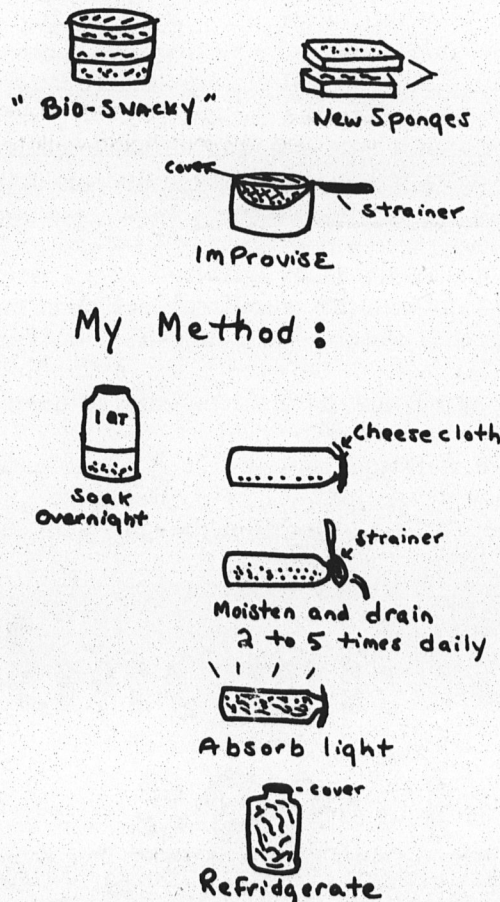 "Bio-SNACKY"
New Sponges
cover
strainer
ImProvisE
My Method:
1 QT
Soak
overnight
Cheese cloth
strainer
Moisten and drain
2 to 5 times daily
Absorb light
cover
Refridgerate